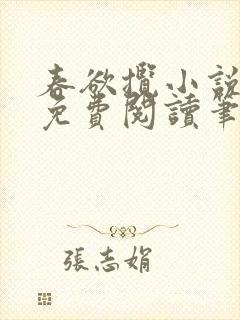 春欲攬小說
免費閱讀筆
張志娟